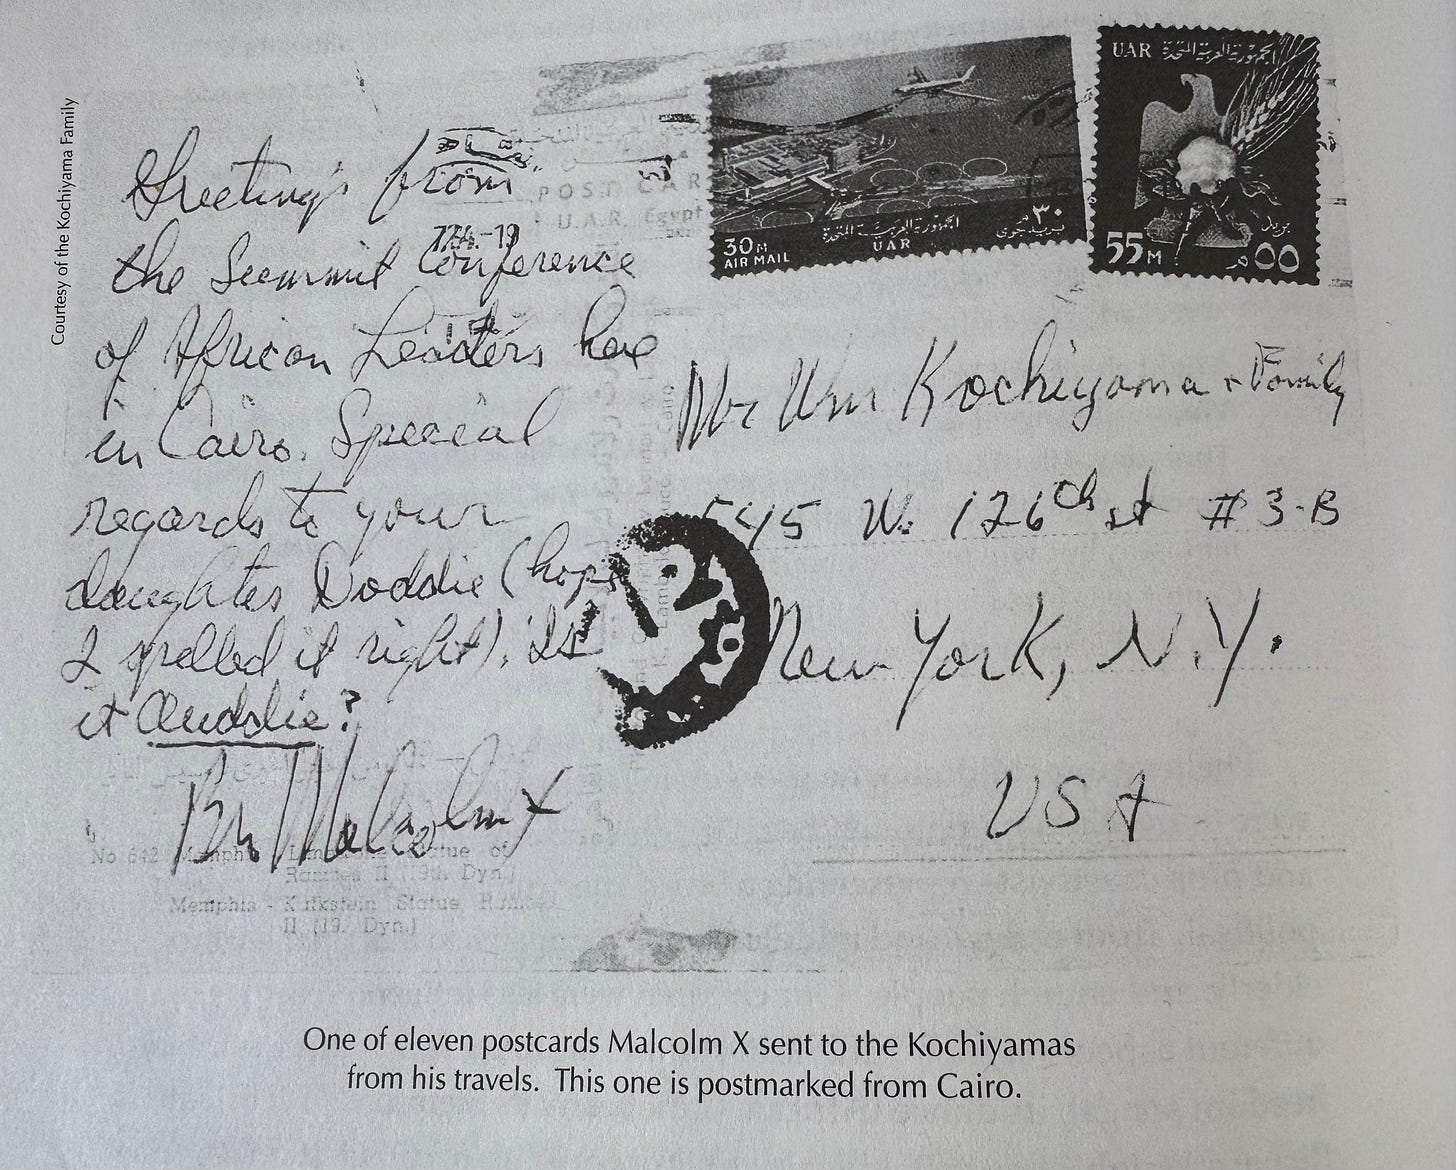 Courtesy of the Kochiyama Family
Greetings from
the Summit Conference
of African Leaders here
in Cairo. Special
regards to your
daughter Doddie (hope
I spelled it right). Is
it Auddie?
Br Malcolm X
POST CAR
U.A.R. Egypt
30M
AIR MAIL
UAR
الجمهورية العربية المتحدة
٣٠ م
بريد جوى
UAR الجمهورية العربية المتحدة
بريد
55M
٥٥ م
Mr Wm Kochiyama + Family
545 W. 126th st # 3-B
New York, N.Y.
USA
No 642 Memphis Statue of
II (19th Dyn.)
Memphis - Statue
II (19. Dyn.)
One of eleven postcards Malcolm X sent to the Kochiyamas
from his travels. This one is postmarked from Cairo.